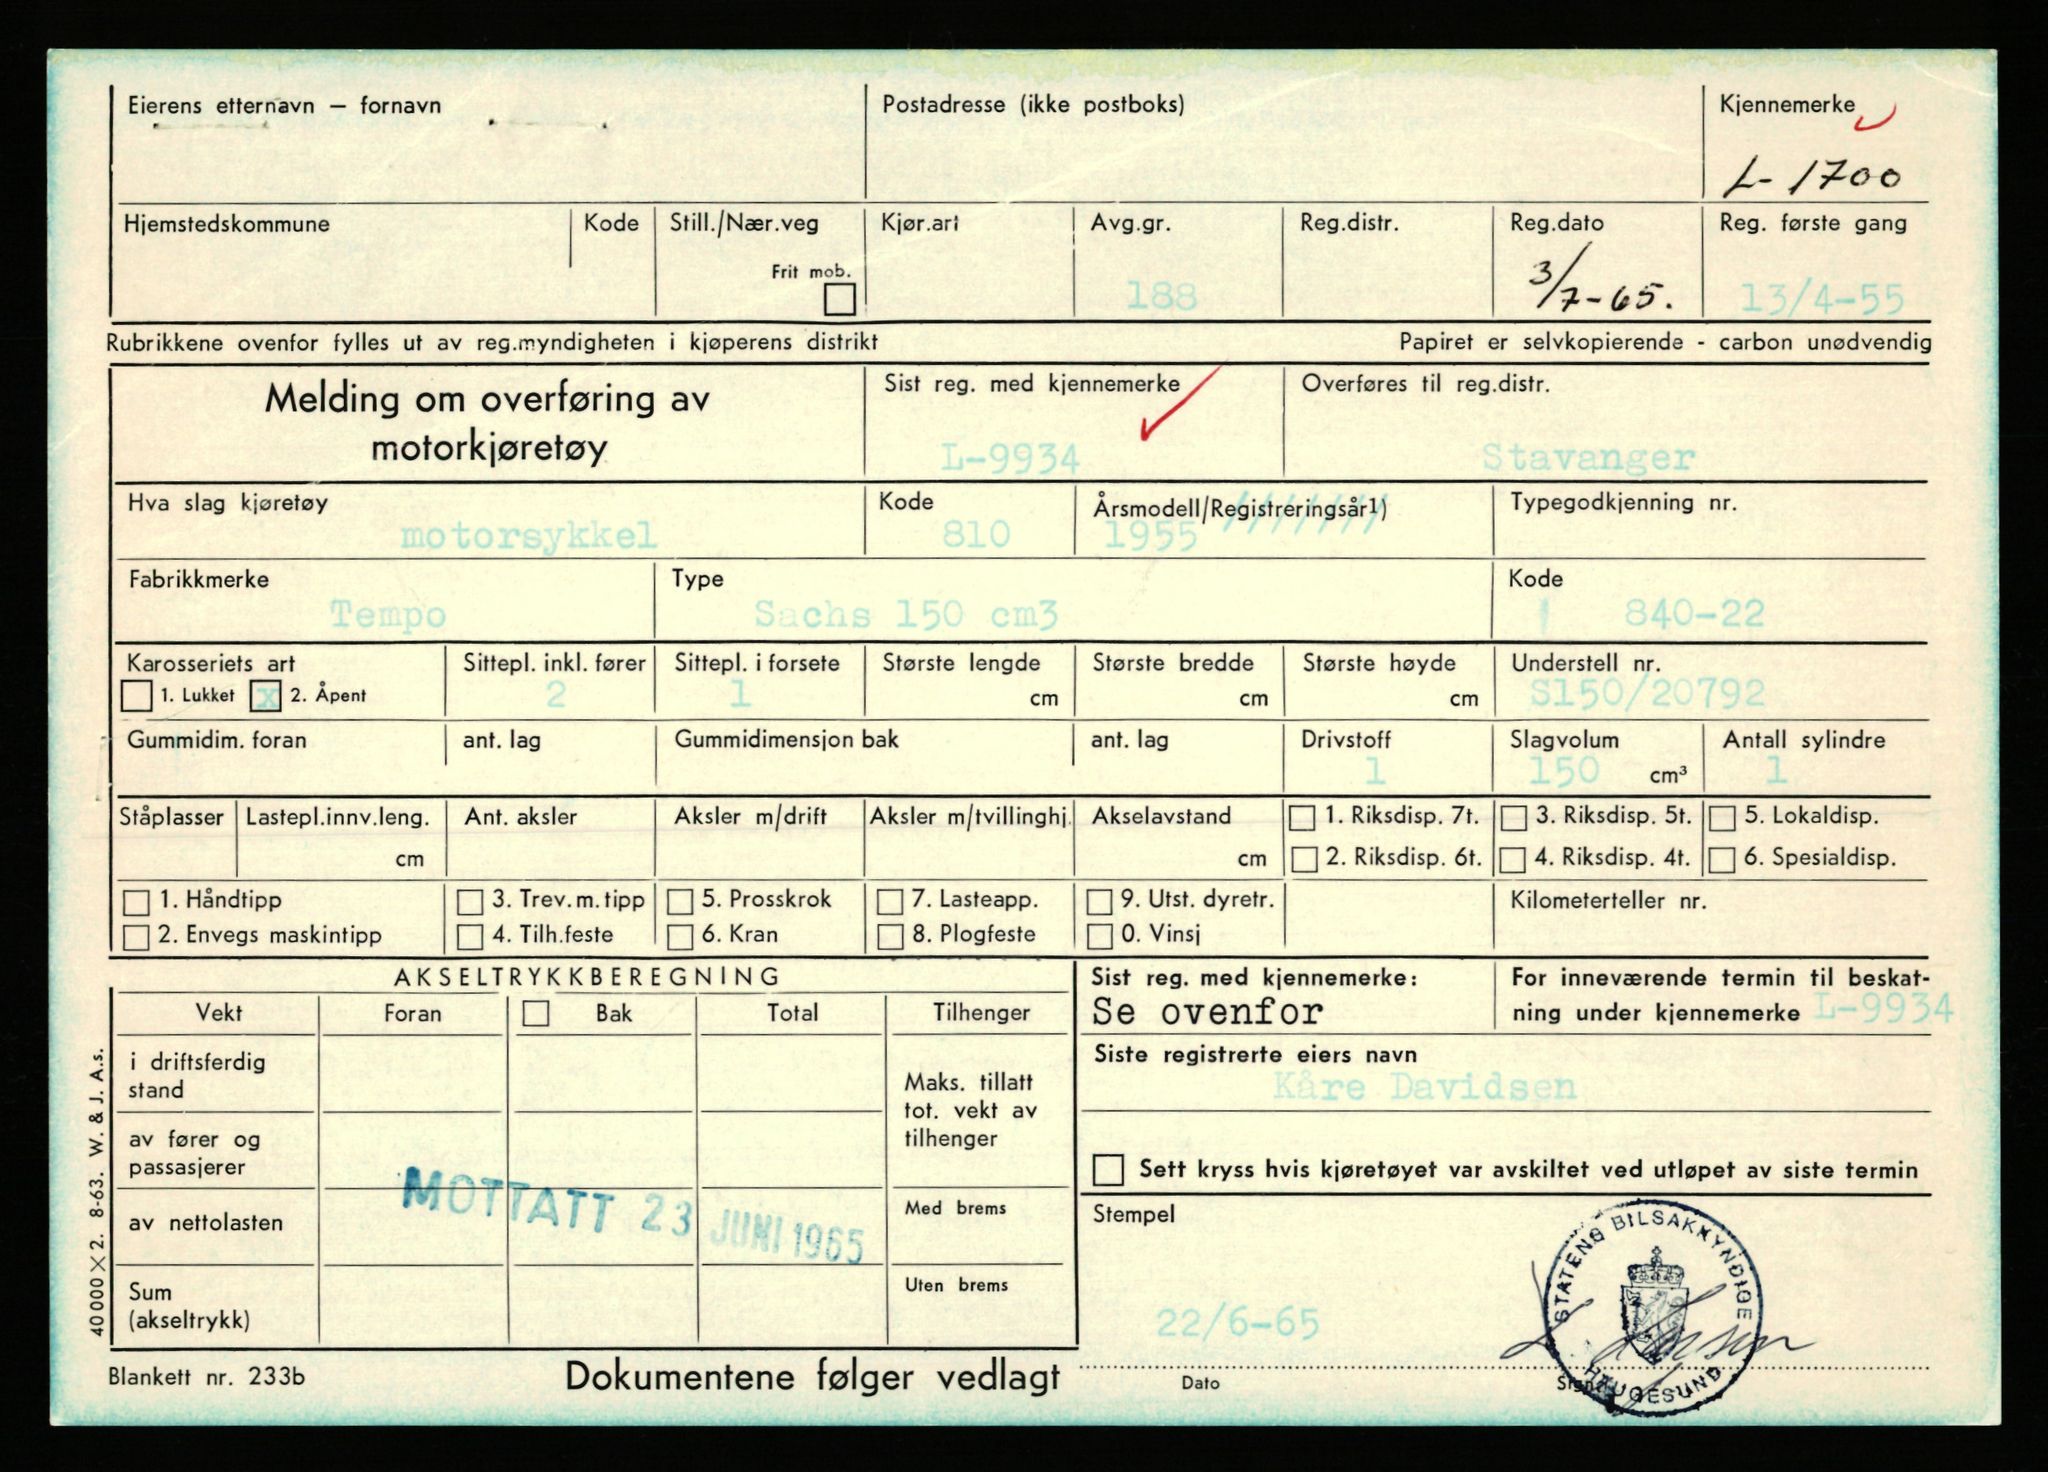 Eierens etternavn – fornavn
Postadresse (ikke postboks)
Kjennemerke
L- 1700
Hjemstedskommune
Kode
Still./Nær.veg
Frit mob.
Kjør.art
Avg.gr.
188
Reg.distr.
Reg.dato
3/7-65.
Reg. første gang
13/4-55
Rubrikkene ovenfor fylles ut av reg.myndigheten i kjøperens distrikt
Papiret er selvkopierende - carbon unødvendig
Melding om overføring av
motorkjøretøy
Sist reg. med kjennemerke
L-9934
Overføres til reg.distr.
Stavanger
Hva slag kjøretøy
motorsykkel
Kode
810
Årsmodell/Registreringsår1)
1955 ///////
Typegodkjenning nr.
Fabrikkmerke
Tempo
Type
Sachs 150 cm3
Kode
840-22
Karosseriets art
1. Lukket x 2. Åpent
Sittepl. inkl. fører
2
Sittepl. i forsete
1
Største lengde
cm
Største bredde
cm
Største høyde
cm
Understell nr.
S150/20792
Gummidim. foran
ant. lag
Gummidimensjon bak
ant. lag
Drivstoff
1
Slagvolum
150 cm³
Antall sylindre
1
Ståplasser
Lastepl.innv.leng.
cm
Ant. aksler
Aksler m/drift
Aksler m/tvillinghj.
Akselavstand
cm
1. Riksdisp. 7t.
2. Riksdisp. 6t.
3. Riksdisp. 5t.
4. Riksdisp. 4t.
5. Lokaldisp.
6. Spesialdisp.
1. Håndtipp
2. Envegs maskintipp
3. Trev. m. tipp
4. Tilh.feste
5. Prosskrok
6. Kran
7. Lasteapp.
8. Plogfeste
9. Utst. dyretr.
0. Vinsj
Kilometerteller nr.
AKSELTRYKKBEREGNING
Vekt
Foran
Bak
Total
Tilhenger
i driftsferdig
stand
av fører og
passasjerer
av nettolasten
Sum
(akseltrykk)
Maks. tillatt
tot. vekt av
tilhenger
Med brems
Uten brems
MOTTATT 23 JUNI 1965
Sist reg. med kjennemerke:
Se ovenfor
For inneværende termin til beskat-
ning under kjennemerke L-9934
Siste registrerte eiers navn
Kåre Davidsen
Sett kryss hvis kjøretøyet var avskiltet ved utløpet av siste termin
Stempel
STATENS BILSAKKYNDIGE
HAUGESUND
22/6-65
Dato
40000 X 2. 8-63. W. & J. A.s.
Blankett nr. 233b
Dokumentene følger vedlagt